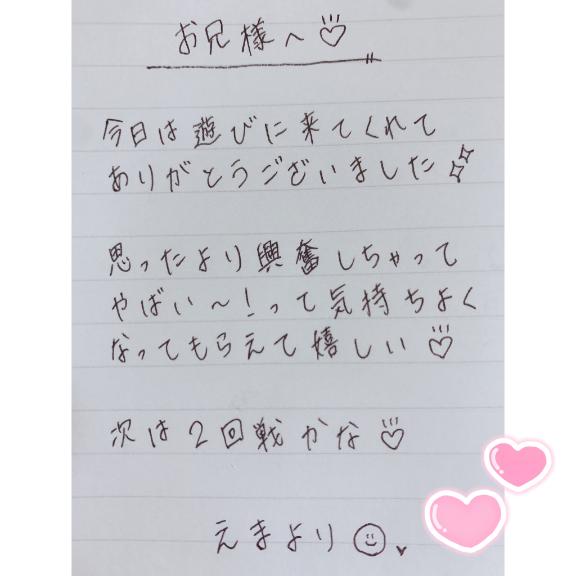 お兄様へ♡
今日は遊びに来てくれて
ありがとうございました
思ったより興奮しちゃって
やばい～!って気持ちよく
なってもらえて嬉しい♡
次は2回戦かな♡
えまより